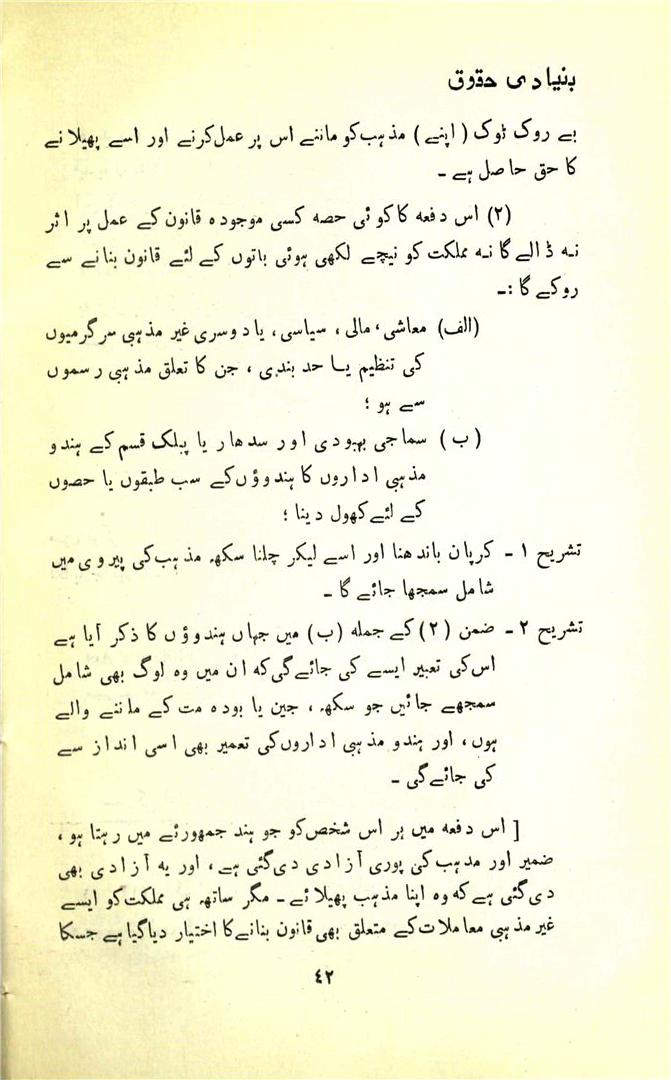 بنیادی حقوق
بے روک ٹوک (اپنے) مذہب کو ماننے اس پر عمل کرنے اور اسے پھیلانے
کا حق حاصل ہے ۔
(۲) اس دفعہ کا کوئی حصہ کسی موجودہ قانون کے عمل پر اثر
نہ ڈالے گا نہ مملکت کو نیچے لکھی ہوئی باتوں کے لئے قانون بنانے سے
روکے گا :۔
(الف) معاشی، مالی، سیاسی، یا دوسری غیر مذہبی سرگرمیوں
کی تنظیم یا حد بندی، جن کا تعلق مذہبی رسموں
سے ہو ؛
(ب) سماجی بہبودی اور سدھار یا پبلک قسم کے ہندو
مذہبی اداروں کا ہندوؤں کے سب طبقوں یا حصوں
کے لئے کھول دینا ؛
تشریح ۱ ۔ کرپان باندھنا اور اسے لیکر چلنا سکھ مذہب کی پیروی میں
شامل سمجھا جائے گا ۔
تشریح ۲ ۔ ضمن (۲) کے جملہ (ب) میں جہاں ہندوؤں کا ذکر آیا ہے
اس کی تعبیر ایسے کی جائے گی کہ ان میں وہ لوگ بھی شامل
سمجھے جائیں جو سکھ، جین یا بودھ مت کے ماننے والے
ہوں، اور ہندو مذہبی اداروں کی تعمیر بھی اسی انداز سے
کی جائے گی ۔
[ اس دفعہ میں ہر اس شخص کو جو ہند جمہورئے میں رہتا ہو،
ضمیر اور مذہب کی پوری آزادی دی گئی ہے، اور یہ آزادی بھی
دی گئی ہے کہ وہ اپنا مذہب پھیلائے ۔ مگر ساتھ ہی مملکت کو ایسے
غیر مذہبی معاملات کے متعلق بھی قانون بنانے کا اختیار دیا گیا ہے جسکا
۴۲